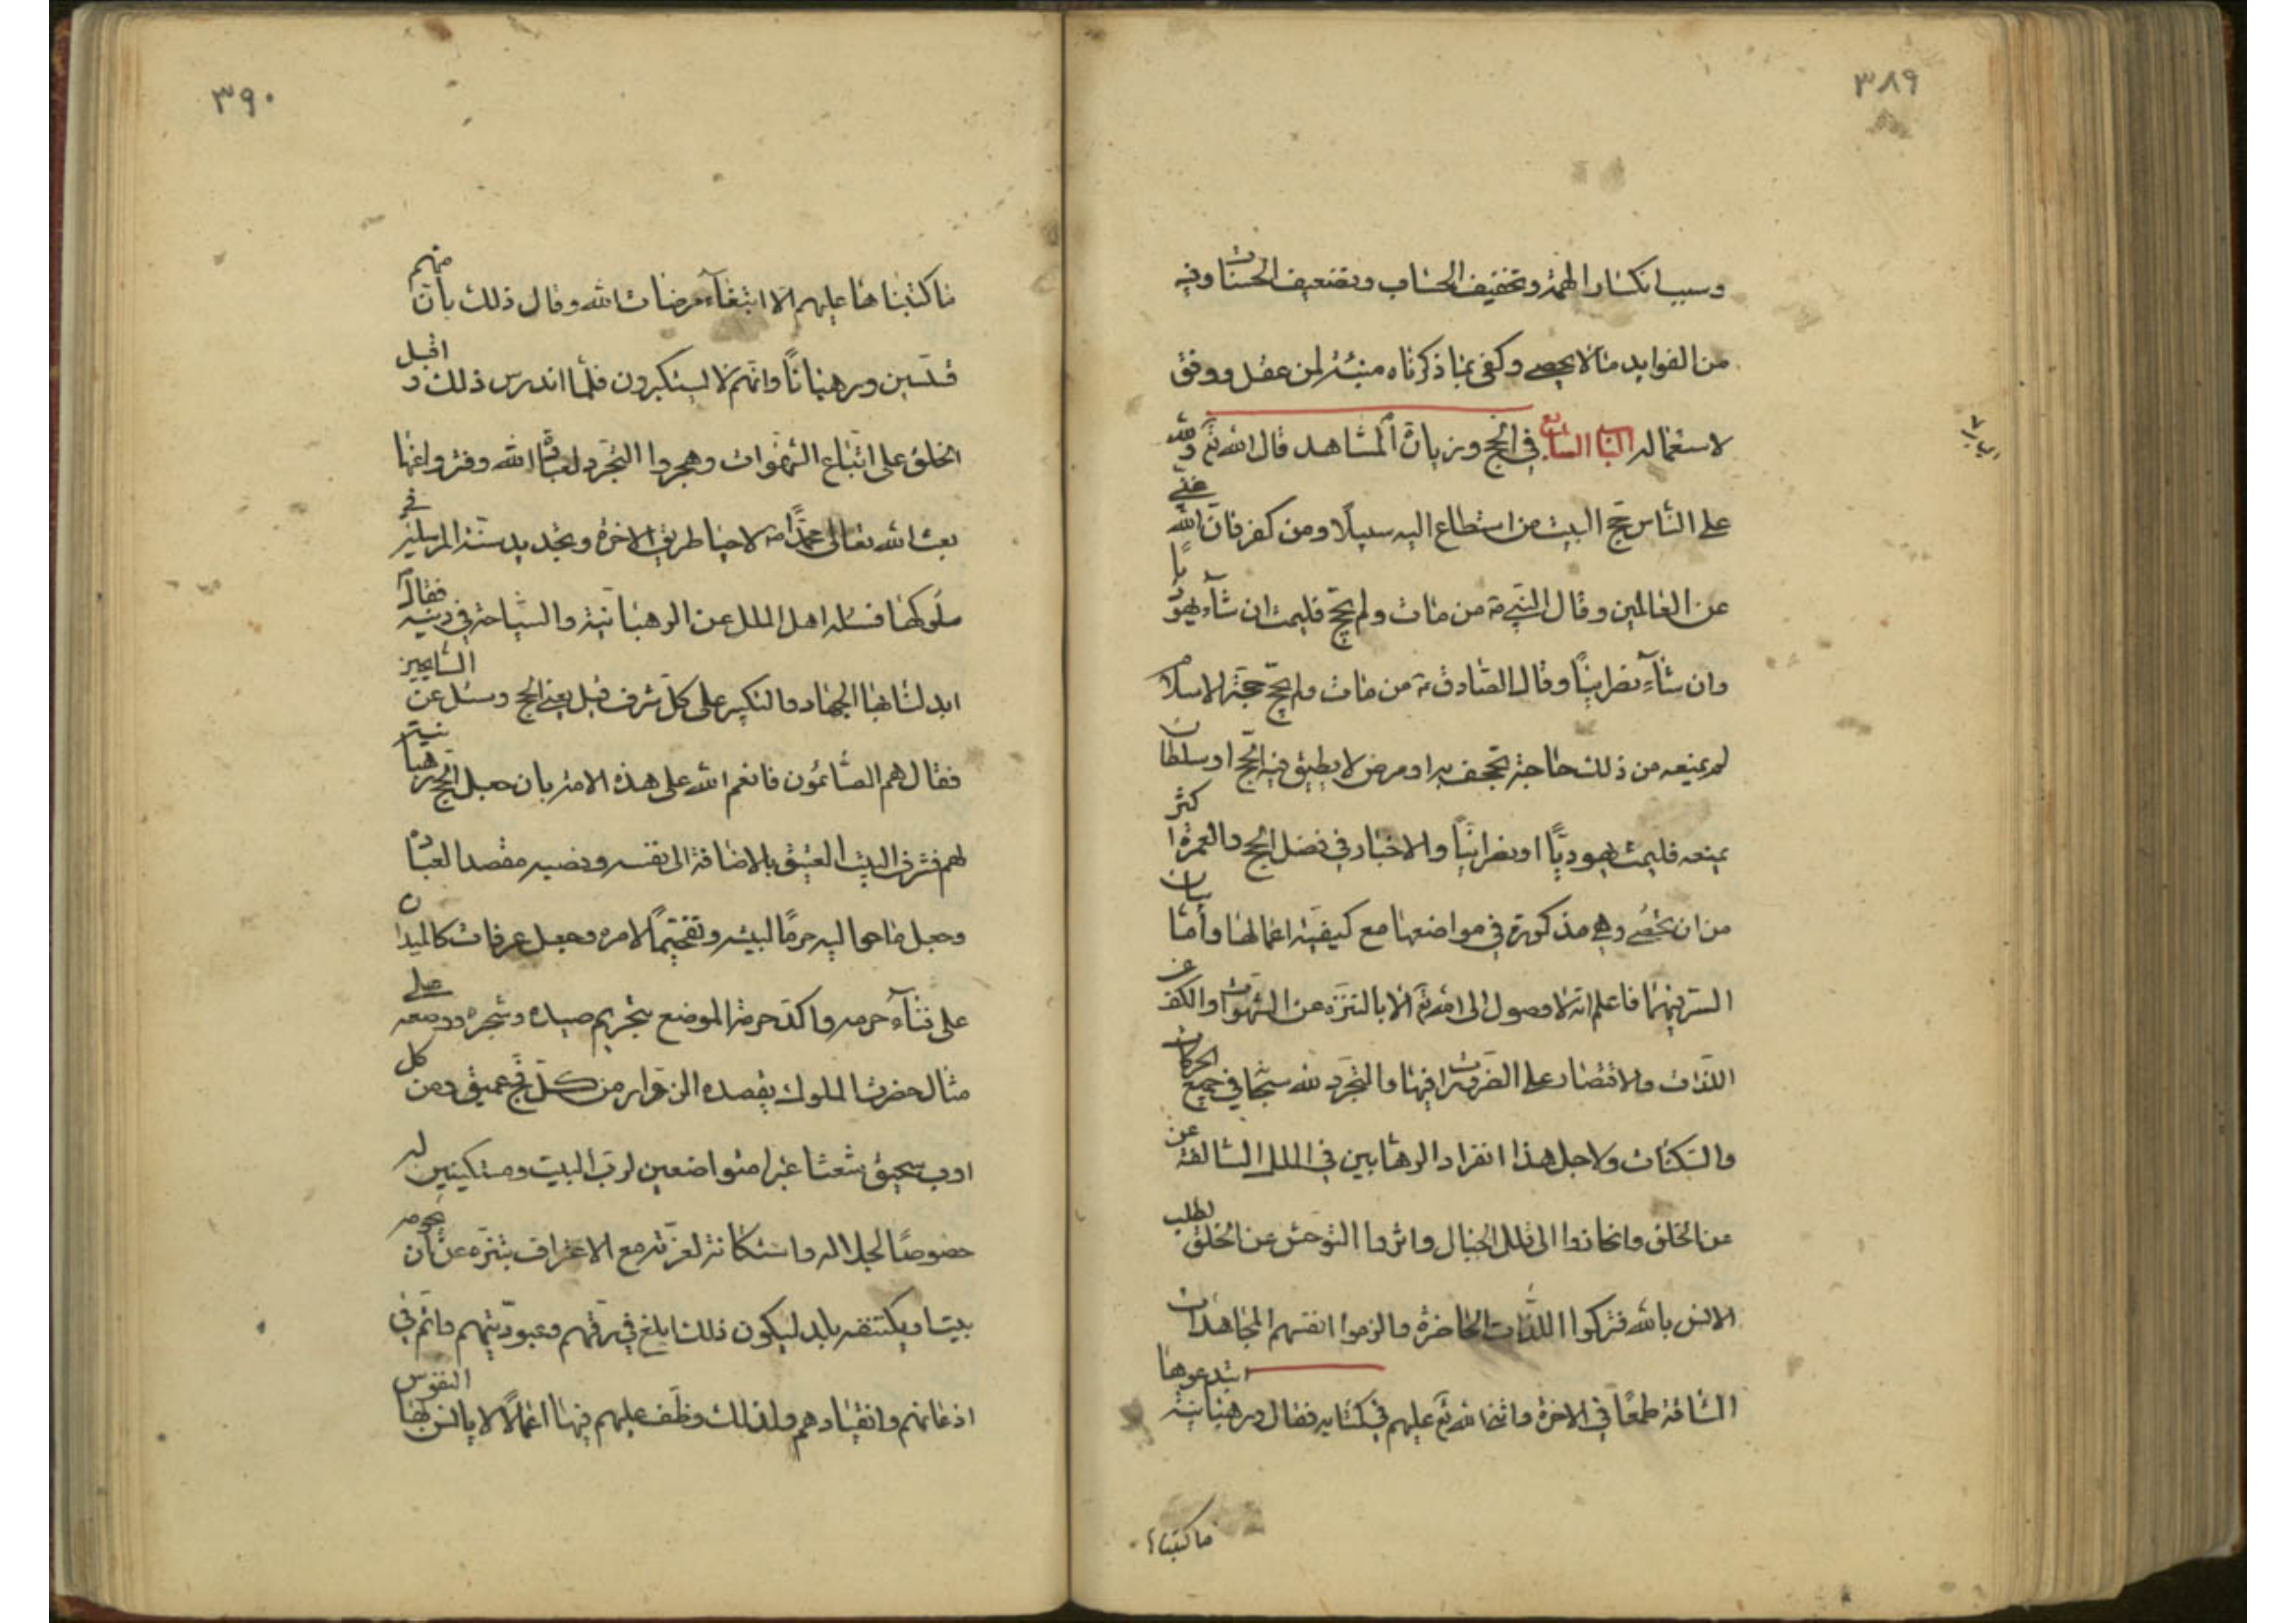 ٣٨٩
وسبب انكسار الهمة وتخفيف الحساب وتضعيف الحسنات وفيه
من الفوايد ما لا يحصى وكفى بما ذكرناه منبئة لمن عقل ووفق
لاستعماله الباب السابع في الحج وزيارة المشاهد قال الله تع ولله
على الناس حج البيت من استطاع اليه سبيلا ومن كفر فان الله غني
عن العالمين وقال النبي ص من مات ولم يحج فليمت ان شآء يهوديا
وان شآء نصرانيا وقال الصادق ع من مات ولم يحج حجة الاسلام
لم يمنعه من ذلك حاجة تجحف به او مرض لا يطيق فيه الحج او سلطان
يمنعه فليمت يهوديا او نصرانيا والاخبار في فضل الحج والعمرة اكثر
من ان تحصى وهي مذكورة في مواضعها مع كيفية اعمالها واما بيان
السر فيهما فاعلم انه لا وصول الى الله تع الا بالتنزه عن الشهوات والكف عن
اللذات والاقتصار على الضرورات فيها والتجرد لله سبحانه في جميع الحركات
والسكنات ولاجل هذا انفراد الرهابين في الملل السالفة عن
عن الخلق وانحازوا الى قلل الجبال واثروا التوحش عن الخلق لطلب
الانس بالله فتركوا اللذات الحاضرة والزموا انفسهم المجاهدات
الشاقة طمعا في الاخرة واثنى الله تع عليهم في كتابه فقال ورهبانية ابتدعوها
ما كتبناها
٣٩٠
ما كتبناها عليهم الا ابتغآء مرضات الله وقال ذلك بان منهم
قسيسين ورهبانا وانهم لا يستكبرون فلما اندرس ذلك و اقبل
الخلق على اتباع الشهوات وهجروا التجرد لعبادة الله وفتروا عنها
بعث الله تعالى محمدا ص لاحيا طريق الاخرة وتجديد سنة المرسلين في
سلوكها فسئله اهل الملل عن الرهبانية والسياحة في دينه فقال
ابدلنا بها الجهاد والتكبير على كل شرف قيل يعني الحج وسئل عن السايحين
فقال هم الصائمون فانعم الله على هذه الامة بان جعل الحج رهبانية
لهم فشرف البيت العتيق بالاضافة الى نفسه ونصبه مقصدا لعباده
وجعل ما حواليه حرما لبيته وتفخيما لامره وجعل عرفات كالميدان
على فنآء حرمه واكد حرمة الموضع بتحريم صيده وشجره ووضعه على
مثال حضرت الملوك يقصده الزوار من كل فج عميق ومن كل
اوب سحيق شعثا غبرا متواضعين لرب البيت ومستكينين له
خضوعا لجلاله واستكانة لعزته مع الاعتراف بتنزهه عن ان يحويه
بيت او يكتنفه بلد ليكون ذلك ابلغ في رقهم وعبوديتهم واتم في
اذعانهم وانقيادهم ولذلك وظف عليهم فيها اعمالا لا يانس بها النفوس